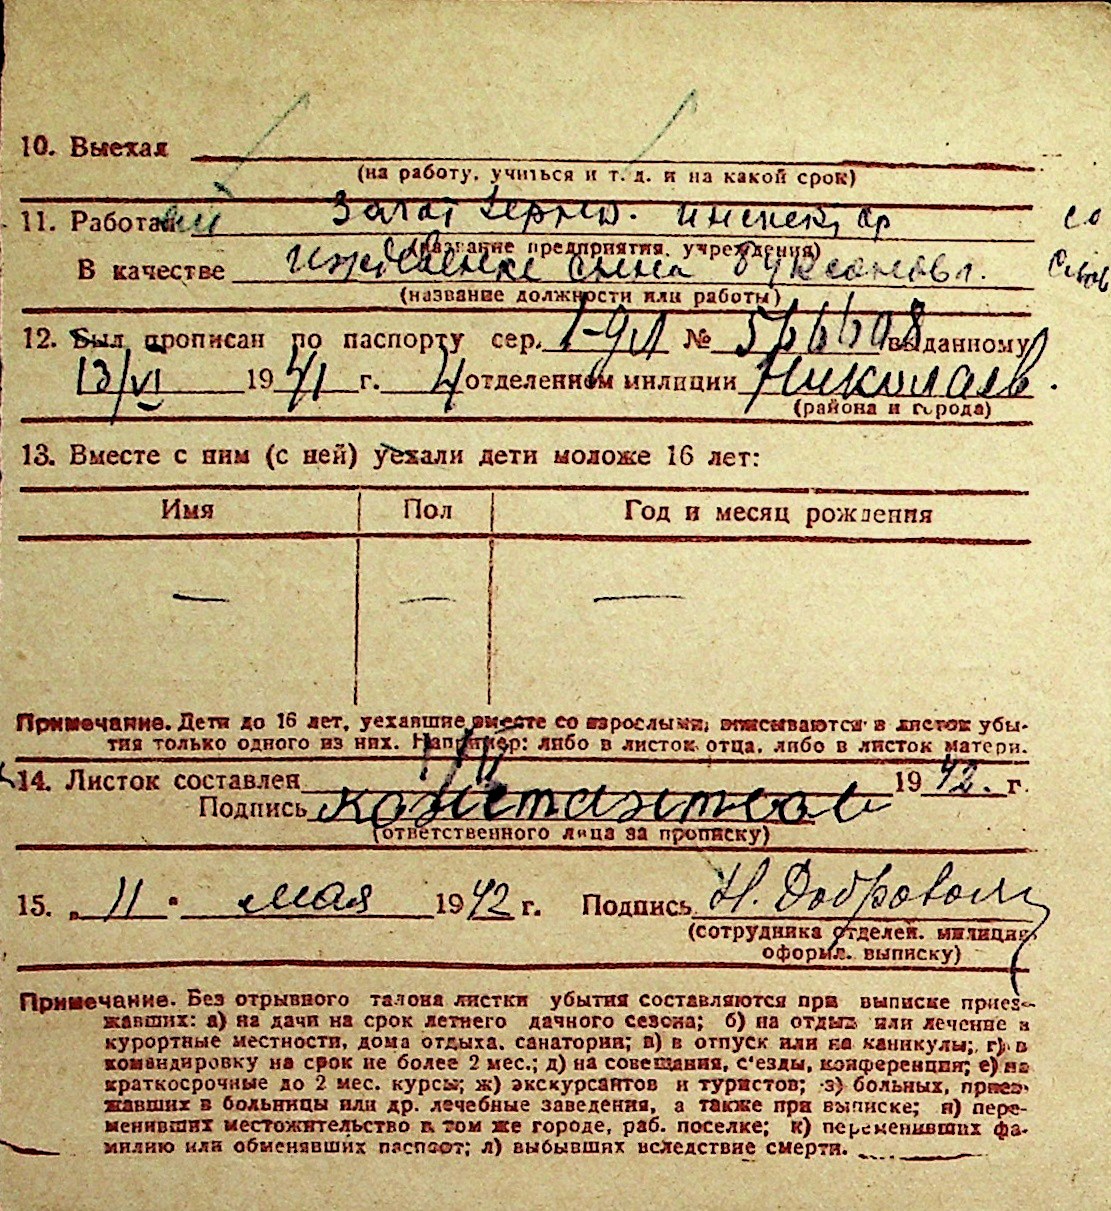 10. Выехал
(на работу, учиться и т. д. и на какой срок)
11. Работал инспектор со
(название предприятия, учреждения)
В качестве иждивенка сына
(название должности или работы)
12. Был прописан по паспорту сер. № выданному
13/VI 1941 г. 4 отделением милиции Николаев.
(района и города)
13. Вместе с ним (с ней) уехали дети моложе 16 лет:
Имя Пол Год и месяц рождения
— — —
Примечание. Дети до 16 лет, уехавшие вместе со взрослыми, вписываются в листок убы-
тия только одного из них. Например: либо в листок отца, либо в листок матери.
14. Листок составлен 1942. г.
Подпись Константинов
(ответственного лица за прописку)
15. „ 11 " мая 1942 г. Подпись Н. Доброволь
(сотрудника отделен. милиции,
оформл. выписку)
Примечание. Без отрывного талона листки убытия составляются при выписке приез-
жавших: а) на дачи на срок летнего дачного сезона; б) на отдых или лечение в
курортные местности, дома отдыха, санатории; в) в отпуск или на каникулы; г) в
командировку на срок не более 2 мес.; д) на совещания, с'езды, конференции; е) на
краткосрочные до 2 мес. курсы; ж) экскурсантов и туристов; з) больных, приез-
жавших в больницы или др. лечебные заведения, а также при выписке; и) пере-
менивших местожительство в том же городе, раб. поселке; к) переменивших фа-
милию или обменявших паспорт; л) выбывших вследствие смерти.